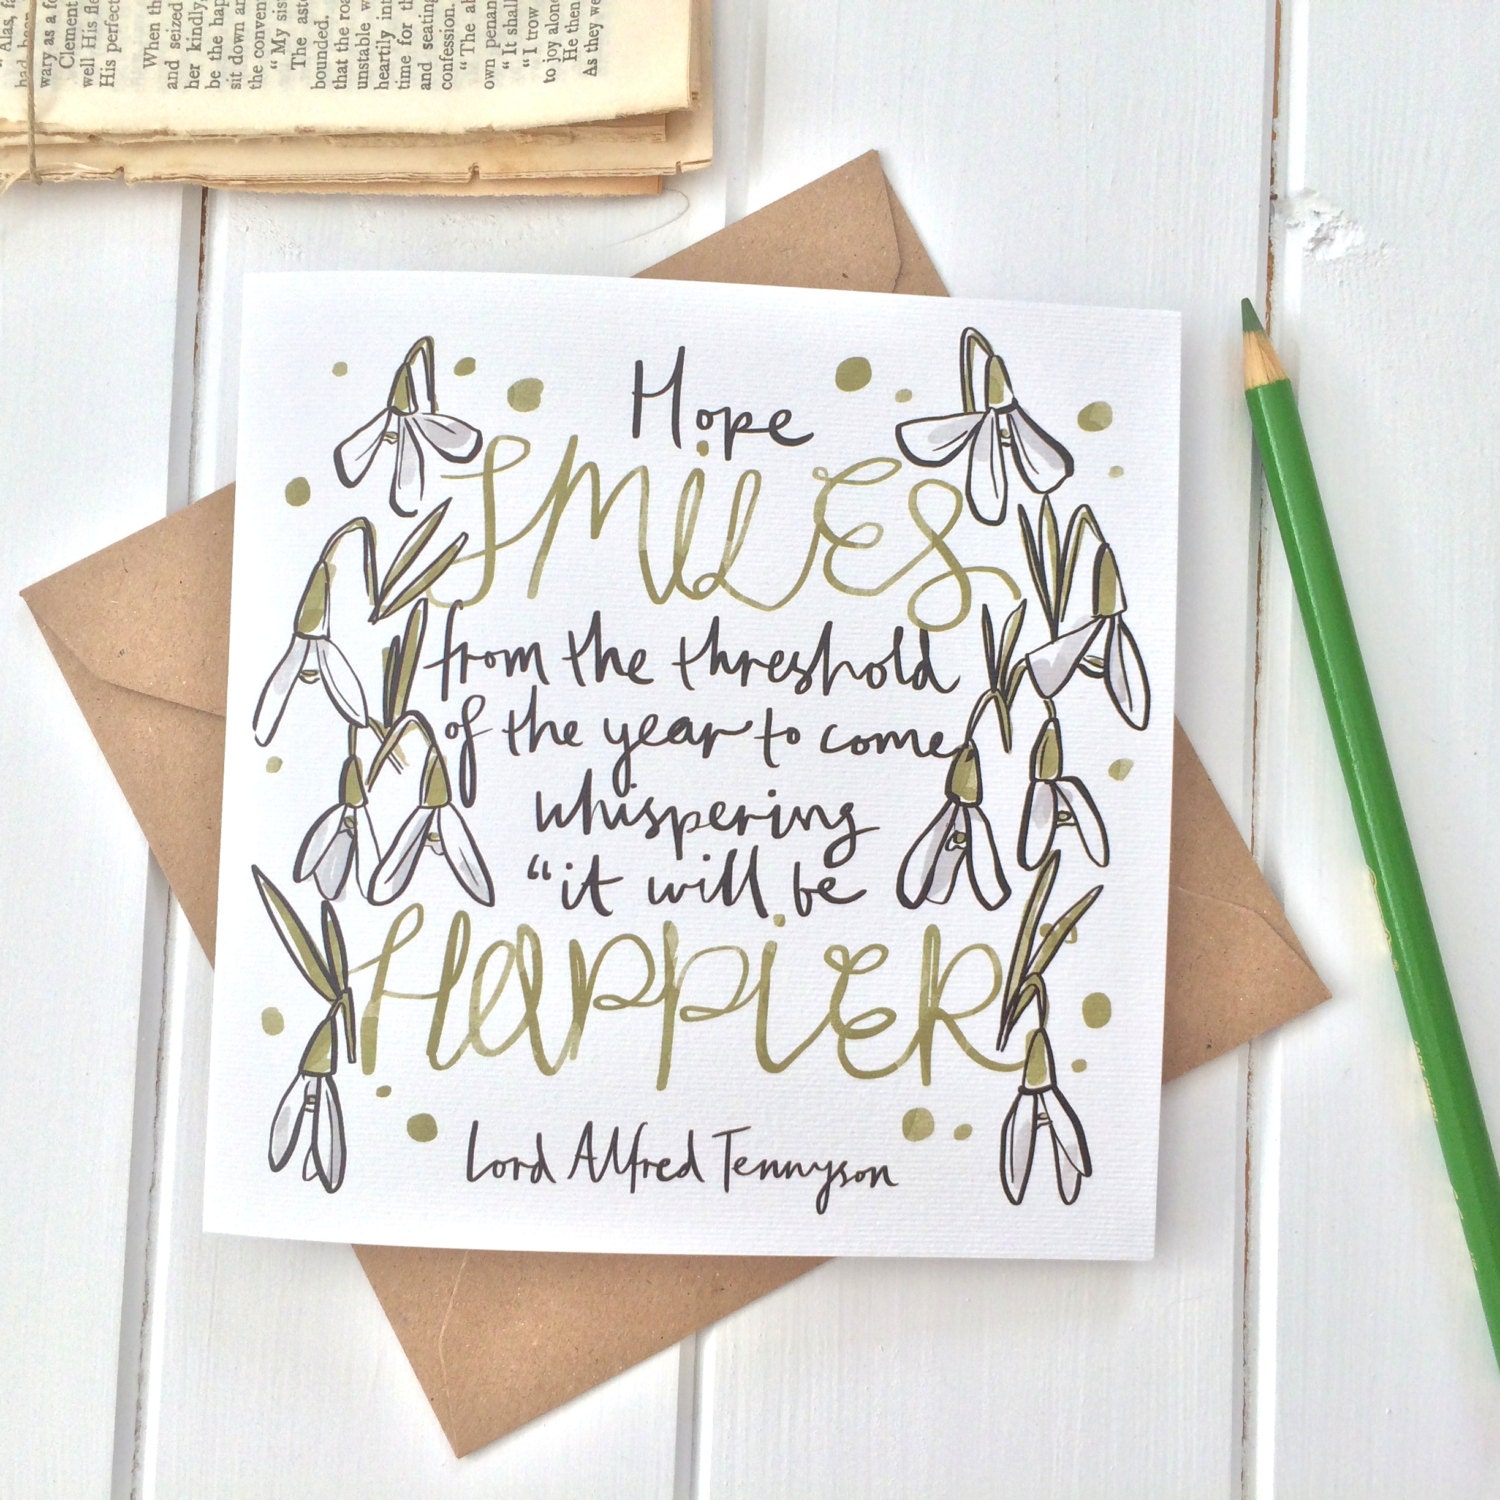 Hope
SMILES
from the threshold
of the year to come
whispering
“it will be
HAPPIER”
Lord Alfred Tennyson
"Alas, fa
had been
wary as a fo
Clement
well His fle
His perfect
When th
and seized
her kindly,
be the hap
sit down an
the conven
"My sis
The ast
bounded.
that the roa
unstable w
heartily int
time for th
and seating
confession.
"The ab
own penan
"It shall
"I trow
to joy alone
He then
As they we